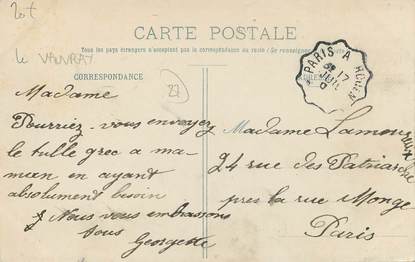 20t
CARTE POSTALE
Tous les pays étrangers n'acceptent pas la correspondance au recto (Se renseigner
le VAUVRAY
CORRESPONDANCE
27
PARIS A ROUEN
17
JUIL
Madame
Pourriez-vous envoyez
le tulle grec a ma-
man en ayant
absolument besoin
Nous vous embrassons
tous
Georgette
Madame Lamoureux
24 rue des Patriarche
pres la rue Monge
Paris